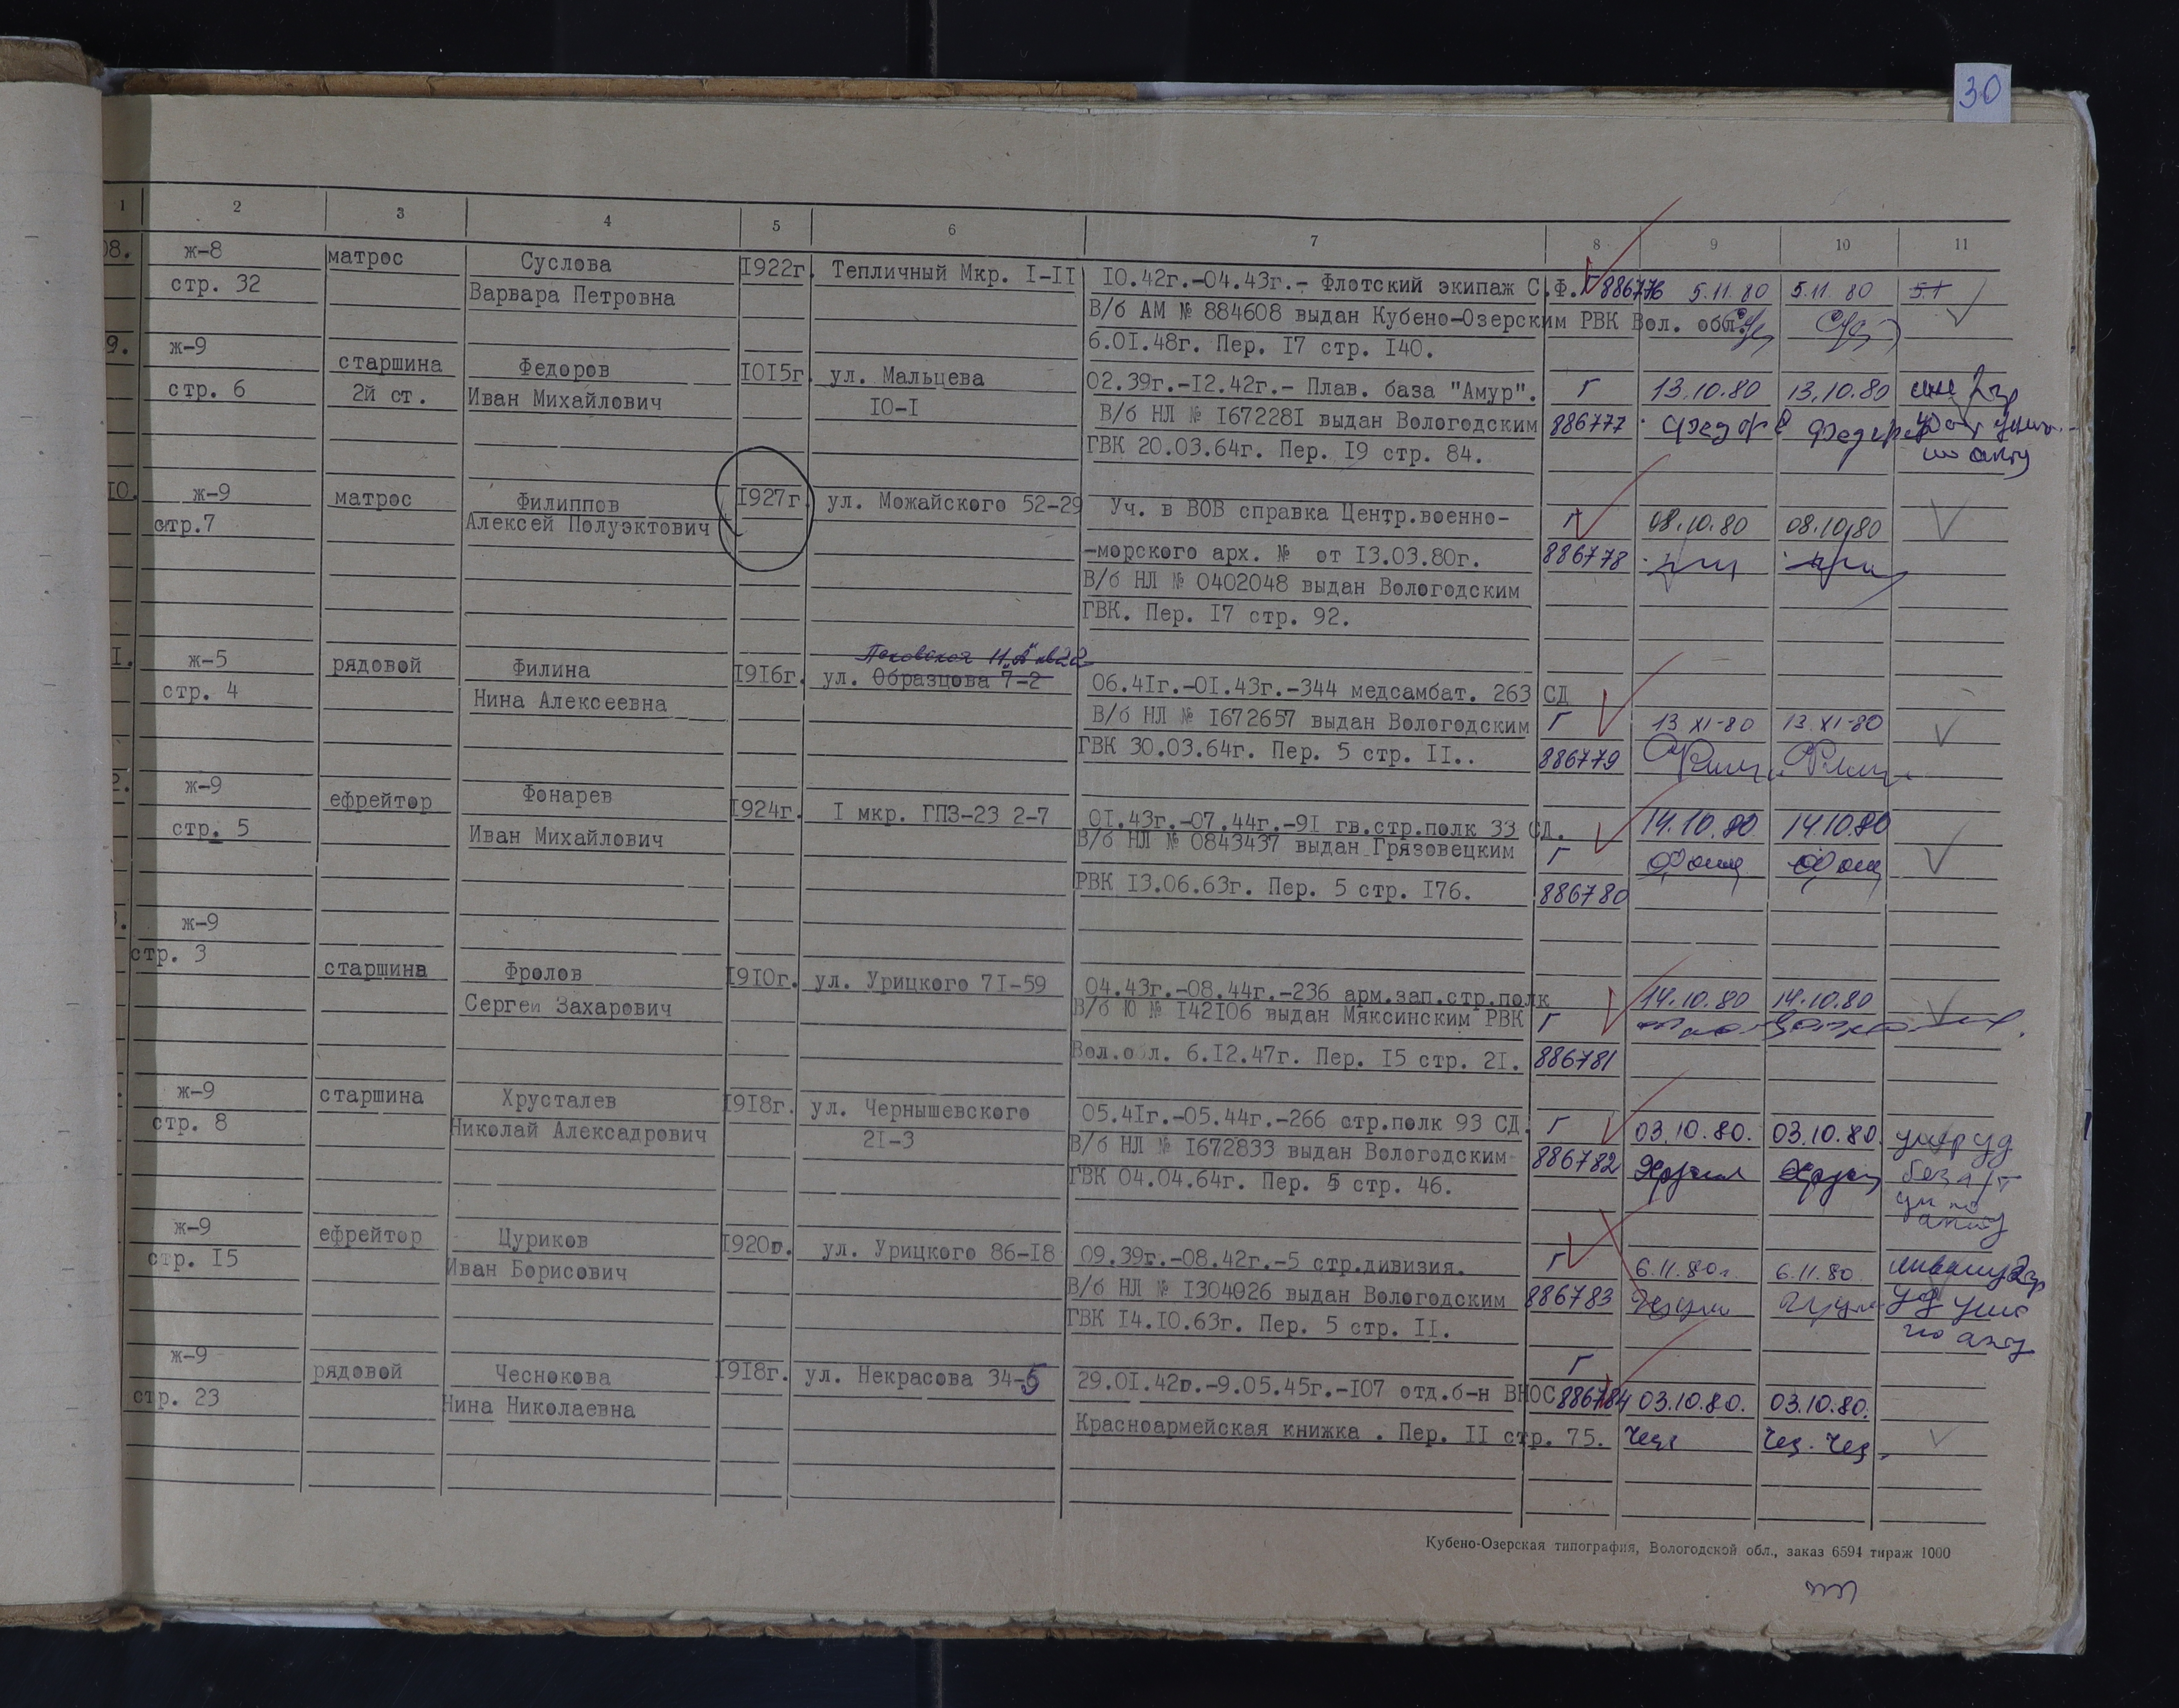 30
1 2 3 4 5 6 7 8 9 10 11
08. ж-8 матрос Суслова 1922г. Тепличный Мкр. I-II 10.42г.-04.43г.- Флотский экипаж С.Ф. Г 886776 5.11.80 5.11.80
стр. 32 Варвара Петровна В/б АМ № 884608 выдан Кубено-Озерским РВК Вол. обл.
6.01.48г. Пер. 17 стр. 140.
9. ж-9 старшина Федоров 1015г. ул. Мальцева 02.39г.-12.42г.- Плав. база "Амур". Г 13.10.80 13.10.80
стр. 6 2й ст. Иван Михайлович 10-1 В/б НЛ № 1672281 выдан Вологодским 886777
ГВК 20.03.64г. Пер. 19 стр. 84. по акту
10. ж-9 матрос Филиппов 1927г. ул. Можайского 52-29 Уч. в ВОВ справка Центр.военно- Г 08.10.80 08.10.80
стр.7 Алексей Полуэктович -морского арх. № от 13.03.80г. 886778
В/б НЛ № 0402048 выдан Вологодским
ГВК. Пер. 17 стр. 92.
1. ж-5 рядовой Филина 1916г. ул. Образцова 7-2 06.41г.-01.43г.-344 медсамбат. 263 СД
стр. 4 Нина Алексеевна В/б НЛ № 1672657 выдан Вологодским Г 13.XI-80 13.XI-80
ГВК 30.03.64г. Пер. 5 стр. II.. 886779
2. ж-9 ефрейтор Фонарев 1924г. I мкр. ГПЗ-23 2-7 01.43г.-07.44г.-91 гв.стр.полк 33 СД. 14.10.80 14.10.80
стр. 5 Иван Михайлович В/б НЛ № 0843437 выдан Грязовецким Г
РВК 13.06.63г. Пер. 5 стр. 176. 886780
ж-9
стр. 3 старшина Фролов 1910г. ул. Урицкого 71-59 04.43г.-08.44г.-236 арм.зап.стр.полк 14.10.80 14.10.80
Сергеи Захарович В/б Ю № 142106 выдан Мяксинским РВК Г
Вол.о л. 6.12.47г. Пер. 15 стр. 21. 886781
ж-9 старшина Хрусталев 1918г. ул. Чернышевского 05.41г.-05.44г.-266 стр.полк 93 СД. Г 03.10.80. 03.10.80.
стр. 8 Николай Алексадрович 21-3 В/б НЛ № 1672833 выдан Вологодским 886782
ГВК 04.04.64г. Пер. 5 стр. 46.
ж-9 ефрейтор Цуриков 1920г. ул. Урицкого 86-18 09.39г.-08.42г.-5 стр.дивизия. Г 6.11.80г. 6.11.80
стр. 15 Иван Борисович В/б НЛ № 1304026 выдан Вологодским 886783
ГВК 14.10.63г. Пер. 5 стр. II. по акту
ж-9 рядовой Чеснокова 1918г. ул. Некрасова 34-5 29.01.42г.-9.05.45г.-107 отд.б-н ВНОС Г 886784 03.10.80. 03.10.80.
стр. 23 Нина Николаевна Красноармейская книжка . Пер. II стр. 75.
Кубено-Озерская типография, Вологодской обл., заказ 6594 тираж 1000